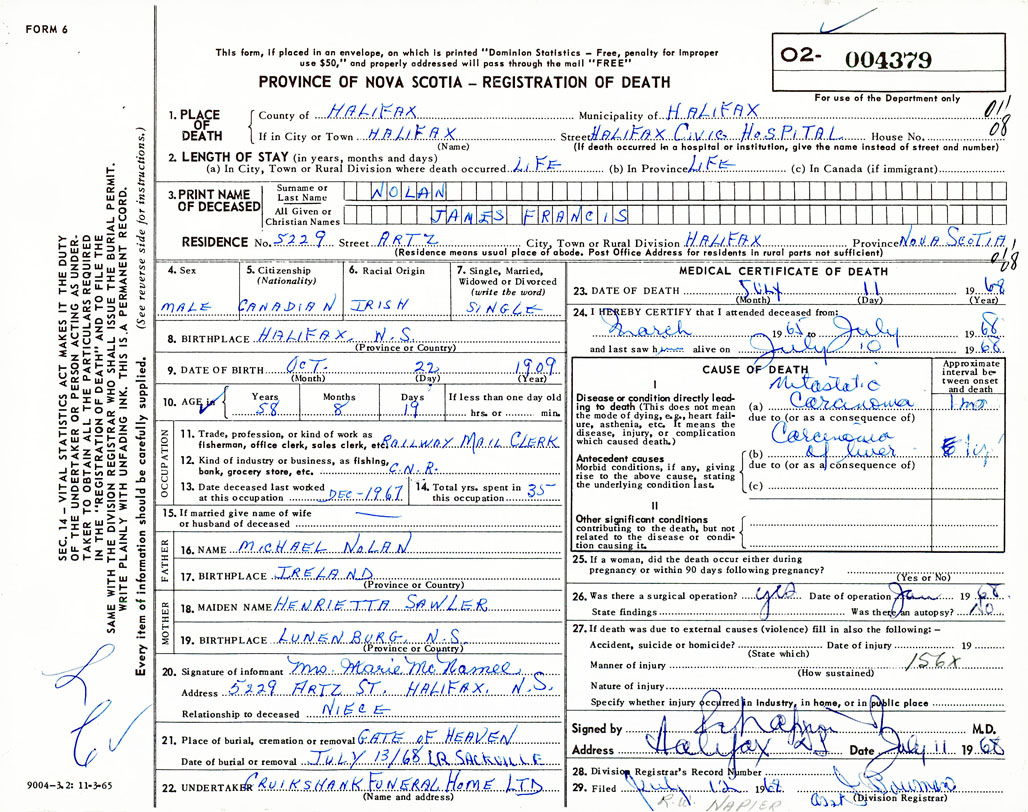 FORM 6
This form, if placed in an envelope, on which is printed "Dominion Statistics – Free, penalty for improper
use $50," and properly addressed will pass through the mail "FREE"
PROVINCE OF NOVA SCOTIA – REGISTRATION OF DEATH
02- 004379
For use of the Department only
011
08
1. PLACE OF DEATH
County of HALIFAX Municipality of HALIFAX
If in City or Town HALIFAX Street HALIFAX CIVIC HOSPITAL House No.
(Name) (If death occurred in a hospital or institution, give the name instead of street and number)
2. LENGTH OF STAY (in years, months and days)
(a) In City, Town or Rural Division where death occurred LIFE (b) In Province LIFE (c) In Canada (if immigrant)
3. PRINT NAME OF DECEASED
Surname or Last Name NOLAN
All Given or Christian Names JAMES FRANCIS
RESIDENCE No. 5229 Street ARTZ City, Town or Rural Division HALIFAX Province NOVA SCOTIA
(Residence means usual place of abode. Post Office Address for residents in rural parts not sufficient)
011
08
4. Sex MALE
5. Citizenship (Nationality) CANADIAN
6. Racial Origin IRISH
7. Single, Married, Widowed or Divorced (write the word) SINGLE
8. BIRTHPLACE HALIFAX N.S.
(Province or Country)
9. DATE OF BIRTH OCT. 22 1909
(Month) (Day) (Year)
10. AGE in Years 58 Months 8 Days 19 If less than one day old hrs. or min.
OCCUPATION
11. Trade, profession, or kind of work as fisherman, office clerk, sales clerk, etc. RAILWAY MAIL CLERK
12. Kind of industry or business, as fishing, bank, grocery store, etc. C.N.R.
13. Date deceased last worked at this occupation DEC-1967
14. Total yrs. spent in this occupation 35
15. If married give name of wife or husband of deceased
FATHER
16. NAME MICHAEL NOLAN
17. BIRTHPLACE IRELAND
(Province or Country)
MOTHER
18. MAIDEN NAME HENRIETTA SAWLER
19. BIRTHPLACE LUNENBURG, N.S.
(Province or Country)
20. Signature of informant Mrs. Marie McNamee
Address 5229 ARTZ ST. HALIFAX, N.S.
Relationship to deceased NIECE
21. Place of burial, cremation or removal GATE OF HEAVEN
Date of burial or removal JULY 13/68 LR SACKVILLE
22. UNDERTAKER CRUIKSHANK FUNERAL HOME LTD
(Name and address)
MEDICAL CERTIFICATE OF DEATH
23. DATE OF DEATH JULY 11 1968
(Month) (Day) (Year)
24. I HEREBY CERTIFY that I attended deceased from:
March 1965 to July 1968
and last saw him alive on July 10 1968
CAUSE OF DEATH
Approximate interval between onset and death
I
Disease or condition directly leading to death (This does not mean the mode of dying, e.g., heart failure, asthenia, etc. It means the disease, injury, or complication which caused death.)
(a) Metastatic Carcinoma 1 mo
due to (or as a consequence of)
Antecedent causes
Morbid conditions, if any, giving rise to the above cause, stating the underlying condition last.
(b) Carcinoma of liver
due to (or as a consequence of)
(c)
II
Other significant conditions
contributing to the death, but not related to the disease or condition causing it.
25. If a woman, did the death occur either during pregnancy or within 90 days following pregnancy?
(Yes or No)
26. Was there a surgical operation? yes Date of operation Jan 1968
State findings Was there an autopsy? No
27. If death was due to external causes (violence) fill in also the following: –
Accident, suicide or homicide? Date of injury 19
(State which)
156X
Manner of injury
(How sustained)
Nature of injury
Specify whether injury occurred in industry, in home, or in public place
Signed by M.D.
Address Halifax NS Date July 11 1968
28. Division Registrar's Record Number
29. Filed July 12 1968
Asst (Division Registrar)
R.W. NAPIER
SEC. 14 – VITAL STATISTICS ACT MAKES IT THE DUTY
OF THE UNDERTAKER OR PERSON ACTING AS UNDER-
TAKER TO OBTAIN ALL THE PARTICULARS REQUIRED
IN THE "REGISTRATION OF DEATH" AND TO FILE THE
SAME WITH THE DIVISION REGISTRAR WHO SHALL ISSUE THE BURIAL PERMIT.
WRITE PLAINLY WITH UNFADING INK. THIS IS A PERMANENT RECORD.
Every item of information should be carefully supplied. (See reverse side for instructions.)
9004-3.2: 11-3-65